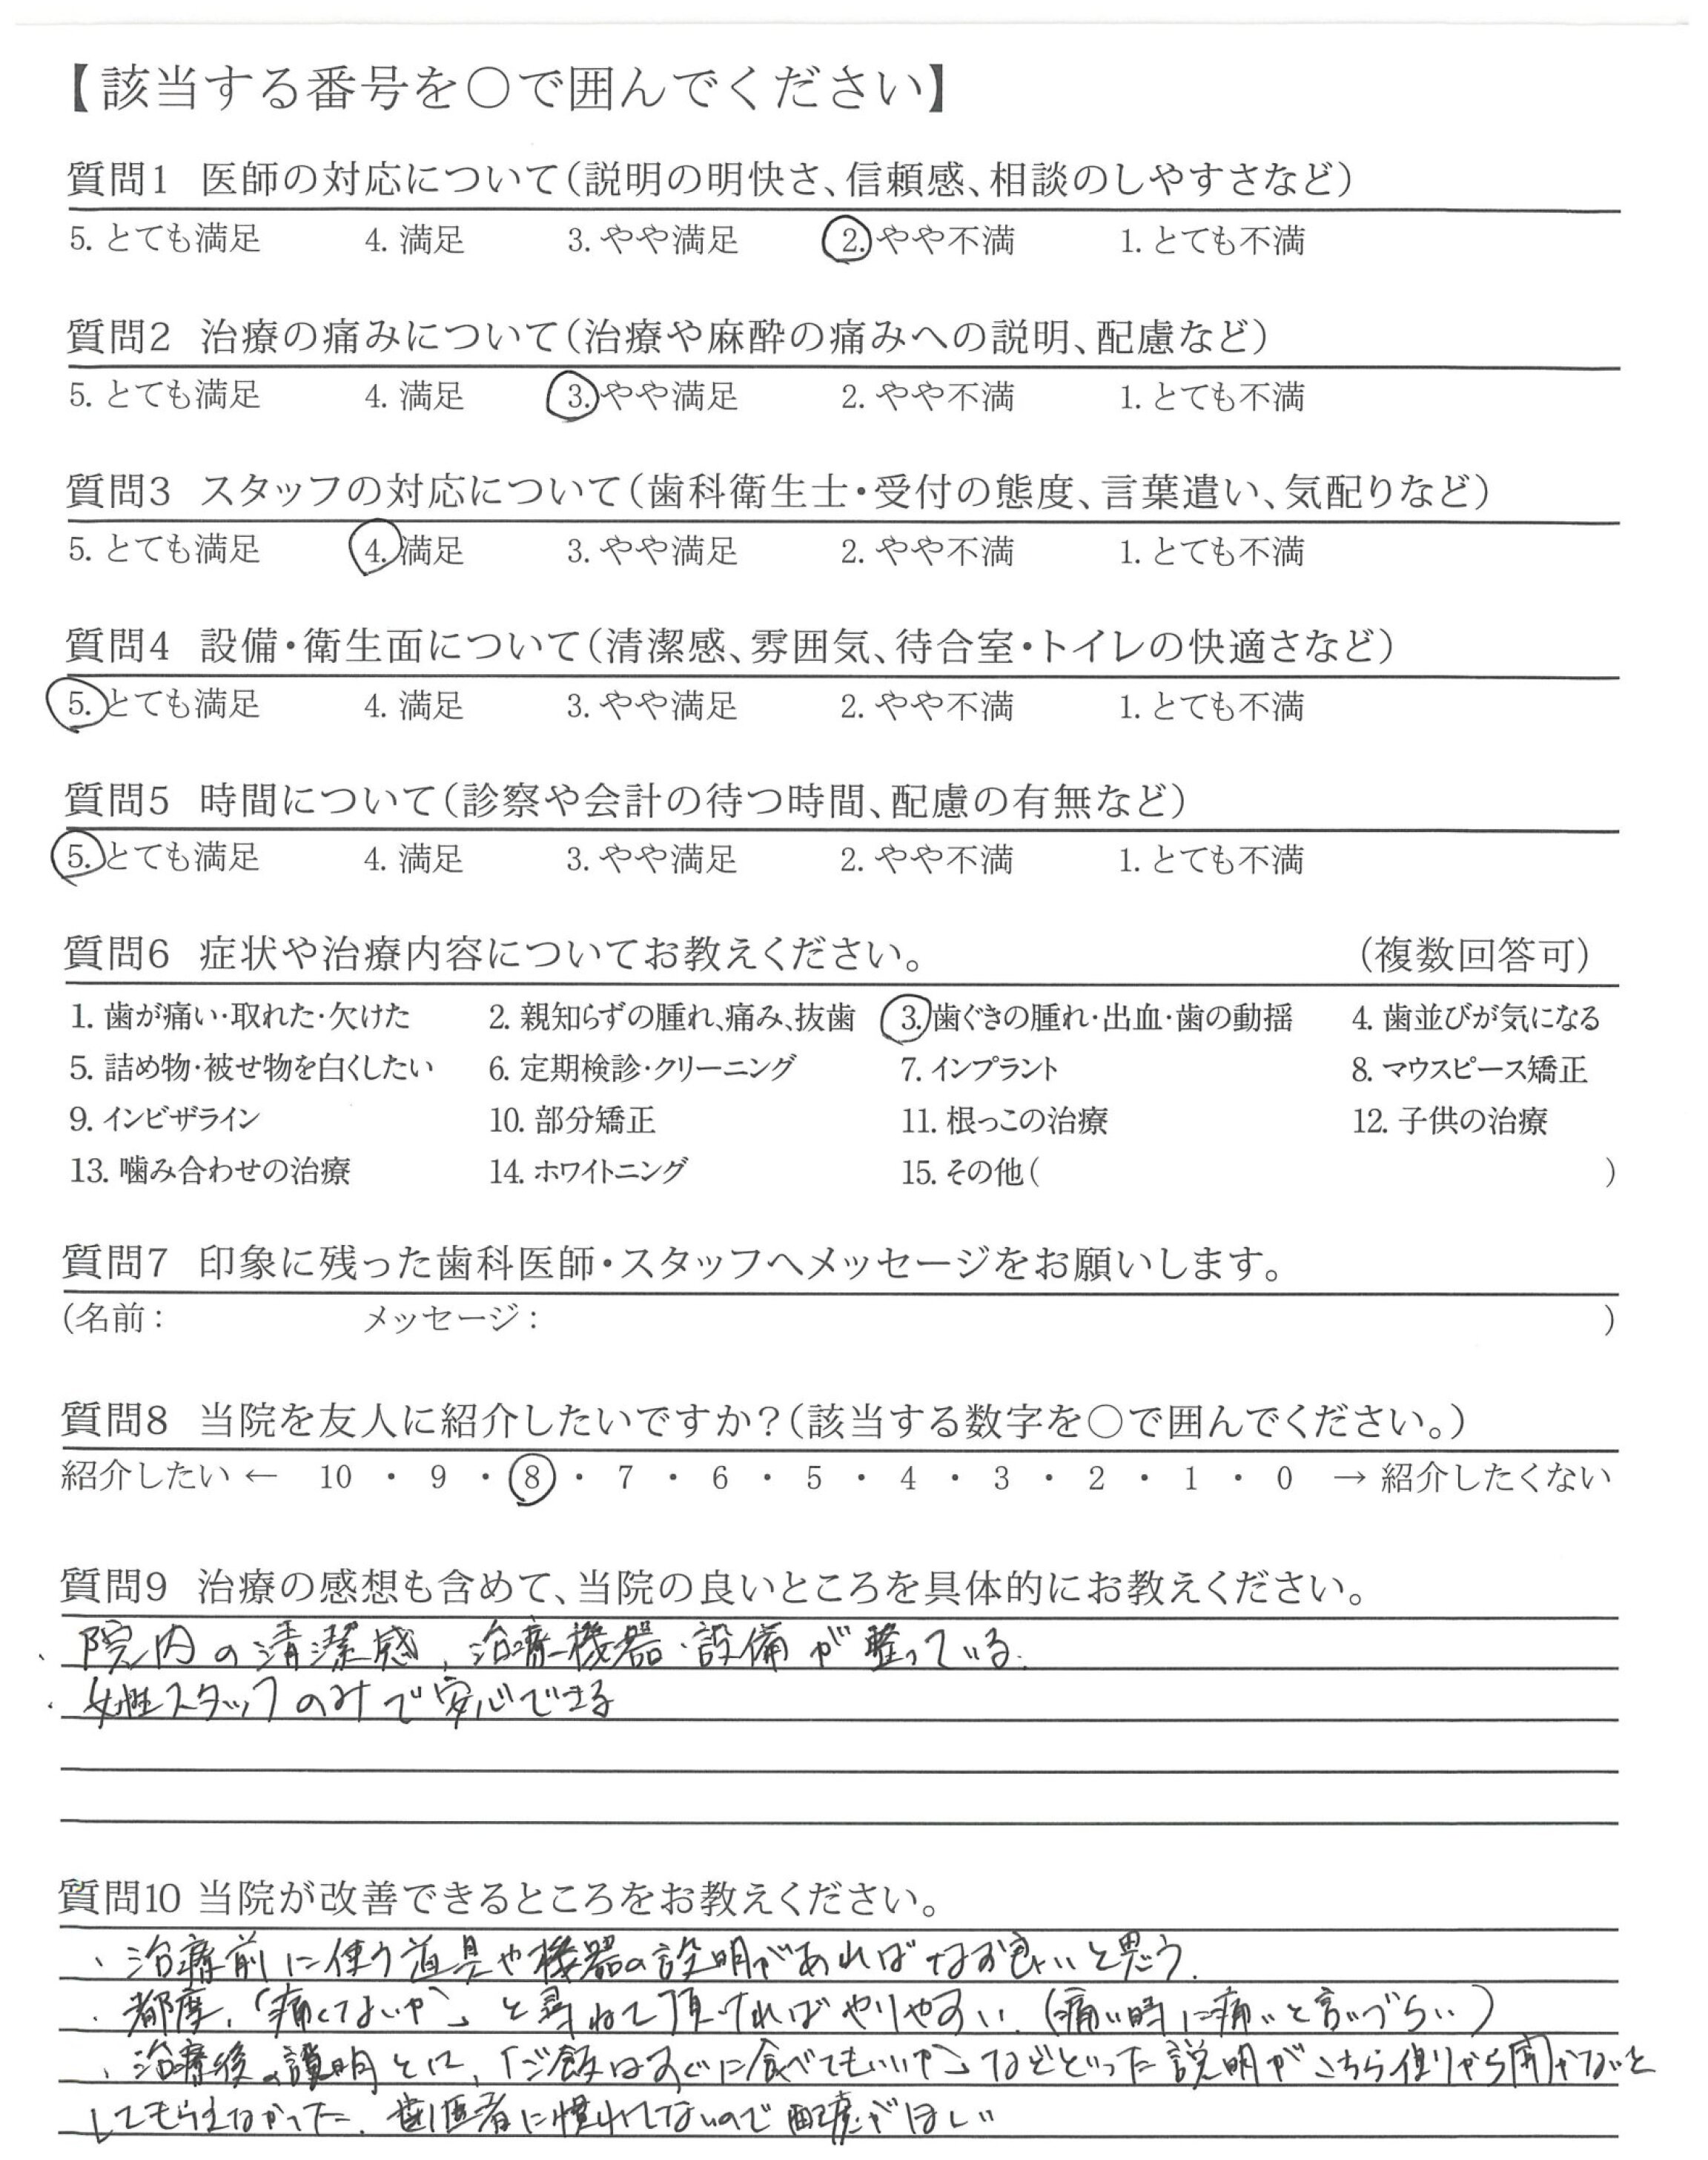 【該当する番号を○で囲んでください】
質問1 医師の対応について(説明の明快さ、信頼感、相談のしやすさなど)
5. とても満足 4. 満足 3. やや満足 2. やや不満 1. とても不満
質問2 治療の痛みについて(治療や麻酔の痛みへの説明、配慮など)
5. とても満足 4. 満足 3. やや満足 2. やや不満 1. とても不満
質問3 スタッフの対応について(歯科衛生士・受付の態度、言葉遣い、気配りなど)
5. とても満足 4. 満足 3. やや満足 2. やや不満 1. とても不満
質問4 設備・衛生面について(清潔感、雰囲気、待合室・トイレの快適さなど)
5. とても満足 4. 満足 3. やや満足 2. やや不満 1. とても不満
質問5 時間について(診察や会計の待つ時間、配慮の有無など)
5. とても満足 4. 満足 3. やや満足 2. やや不満 1. とても不満
質問6 症状や治療内容についてお教えください。 (複数回答可)
1. 歯が痛い・取れた・欠けた 2. 親知らずの腫れ、痛み、抜歯 3. 歯ぐきの腫れ・出血・歯の動揺 4. 歯並びが気になる
5. 詰め物・被せ物を白くしたい 6. 定期検診・クリーニング 7. インプラント 8. マウスピース矯正
9. インビザライン 10. 部分矯正 11. 根っこの治療 12. 子供の治療
13. 噛み合わせの治療 14. ホワイトニング 15. その他( )
質問7 印象に残った歯科医師・スタッフへメッセージをお願いします。
(名前: メッセージ: )
質問8 当院を友人に紹介したいですか?(該当する数字を○で囲んでください。)
紹介したい ← 10 ・ 9 ・ 8 ・ 7 ・ 6 ・ 5 ・ 4 ・ 3 ・ 2 ・ 1 ・ 0 → 紹介したくない
質問9 治療の感想も含めて、当院の良いところを具体的にお教えください。
・院内の清潔感、治療機器・設備が整っている.
・女性スタッフのみで安心できる
質問10 当院が改善できるところをお教えください。
・治療前に使う道具や機器の説明があればなお良いと思う.
・都度、「痛くないか」と尋ねて頂ければやりやすい.(痛い時に痛いと言いづらい)
・治療後の説明とは、「ご飯はすぐに食べてもいいか」などといった説明がこちら側から聞かないと
してもらえなかった. 歯医者に慣れてないので配慮がほしい